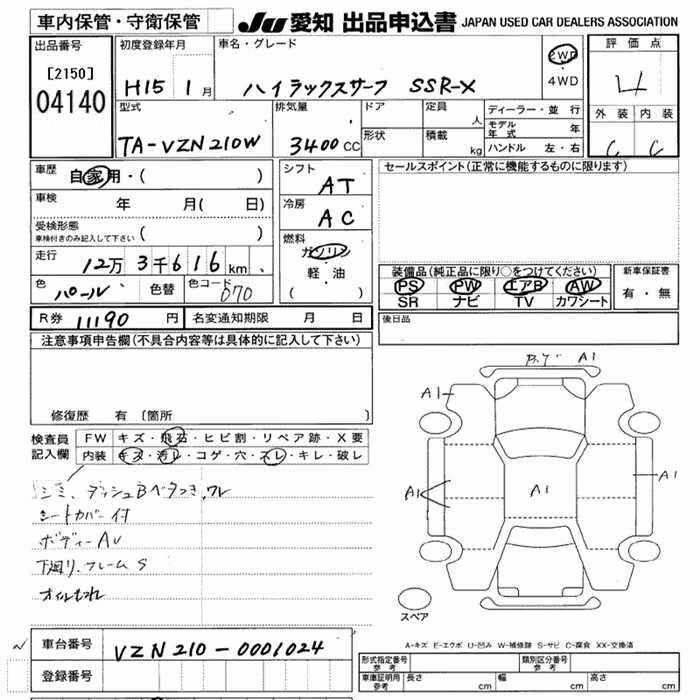 車内保管・守衛保管
JU 愛知 出品申込書 JAPAN USED CAR DEALERS ASSOCIATION
出品番号
[2150]
04140
初度登録年月
H15 1 月
車名・グレード
ハイラックスサーフ SSR-X
2WD
・
4WD
評価点
4
外装 内装
C C
型式
TA-VZN210W
排気量
3400 CC
ドア
形状
定員
人
積載
kg
ディーラー・並行
モデル年式 年
ハンドル 左・右
車歴 自家用・( )
車検 年 月( 日)
受検形態
車検付きのみ記入して下さい ( )
走行 12万 3千 6 1 6 km
色 パール 色替 色コード 070
シフト
AT
冷房
AC
燃料
ガソリン
・
軽・油
( )
セールスポイント(正常に機能するものに限ります)
装備品(純正品に限り○をつけてください)
PS PW エアB AW
SR ナビ TV カワシート
新車保証書
有・無
後日品
R券 11190 円 名変通知期限 月 日
注意事項申告欄(不具合内容等は具体的に記入して下さい)
修復歴 有 〔箇所 〕
検査員
記入欄
FW キズ・飛石・ヒビ割・リペア跡・X要
内装 キズ・汚レ・コゲ・穴・スレ・キレ・破レ
シミ、ダッシュBベタつき、ワレ
シートカバー付
ボディーAU
下廻り、フレームS
オイルもれ
A1
A1
A1
A1
A1
スペア
A-キズ E-エクボ U-凹み W-補修跡 S-サビ C-腐食 XX-交換済
車台番号 VZN210-0001024
登録番号
形式指定番号
参考
類別区分番号
参考
車庫証明用
参考
長さ cm 幅 cm 高さ cm